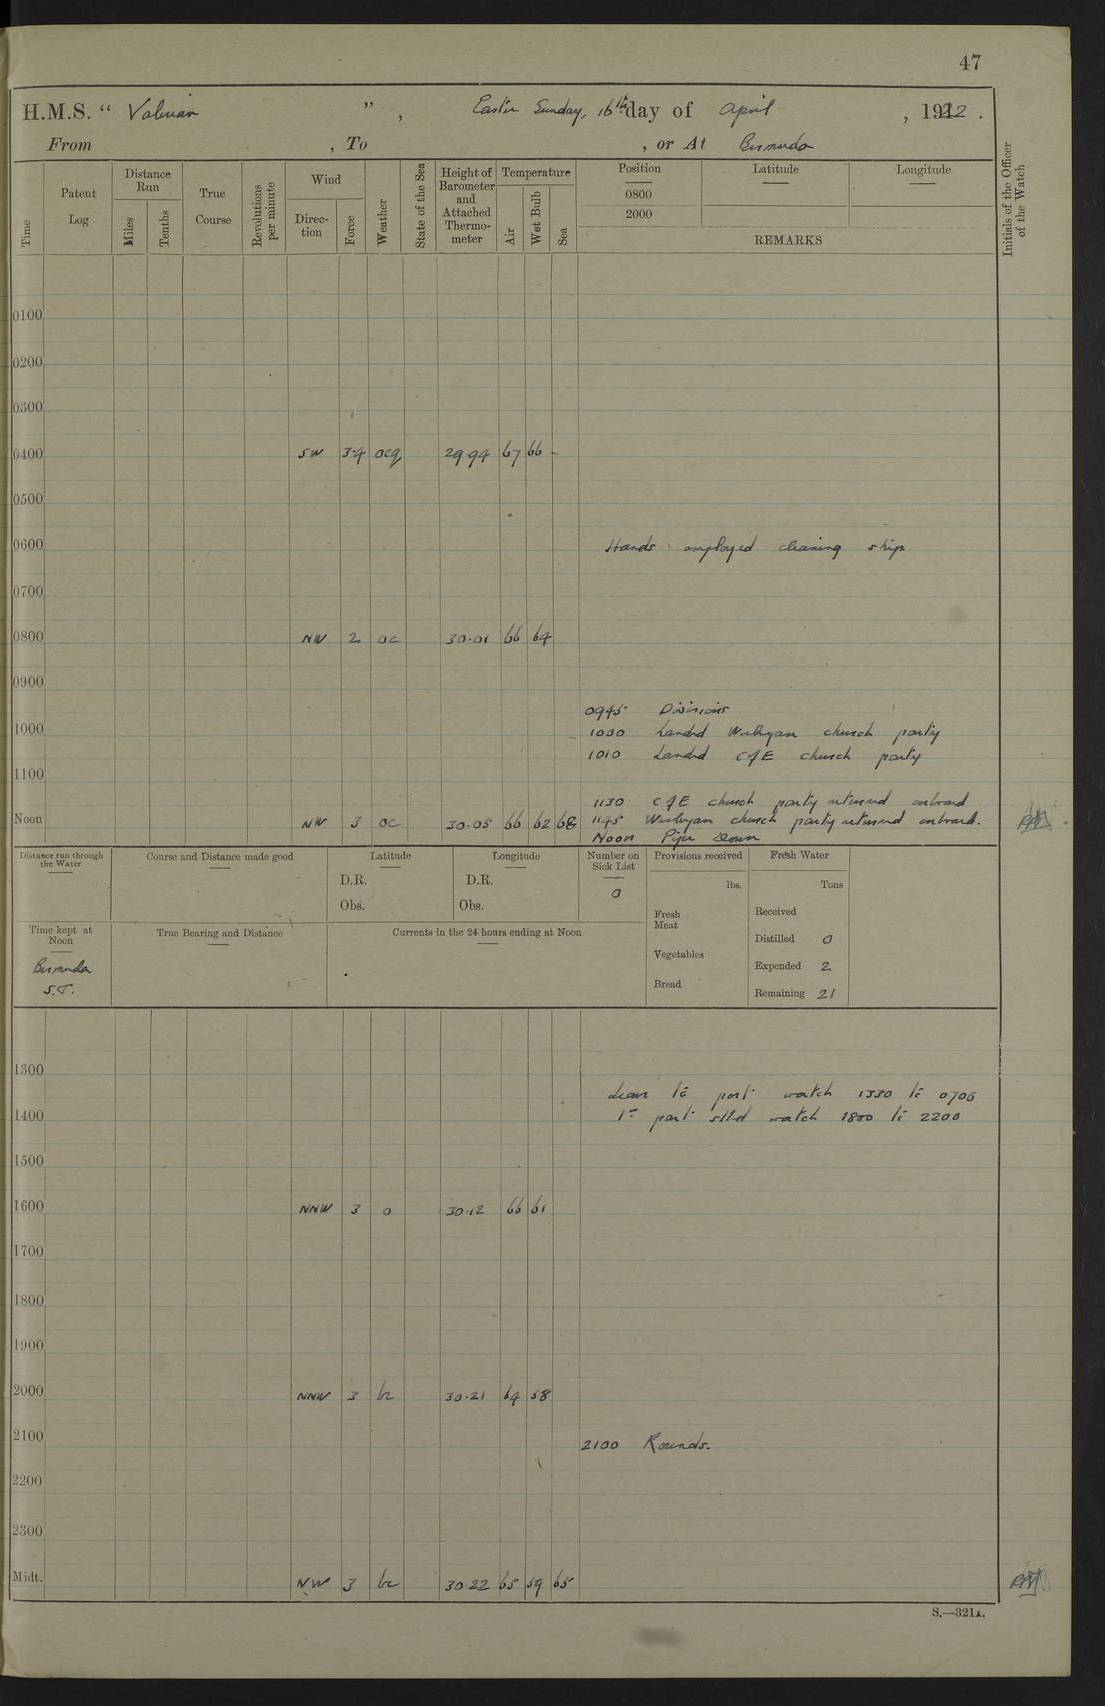 47
H.M.S. " Valerian " , Easter Sunday, 16th day of April , 1922 .
From , To , or At Bermuda
Time
Patent Log
Distance Run
Miles
Tenths
True Course
Revolutions per minute
Wind
Direc-tion
Force
Weather
State of the Sea
Height of Barometer and Attached Thermo-meter
Temperature
Air
Wet Bulb
Sea
Position
0800
2000
Latitude
Longitude
REMARKS
Initials of the Officer of the Watch
0100
0200
0300
0400 SW 3-4 ocq 29 94 67 66 -
0500
0600 Hands employed cleaning ship.
0700
0800 NW 2 oc 30.01 66 64
0900
0945 Divisions
1000 1000 Landed Wesleyan church party
1010 Landed C of E church party
1100
1130 C of E church party returned onboard
Noon NW 3 oc 30.05 66 62 68 1145 Wesleyan church party returned onboard.
Noon Pipe Down
Distance run through the Water
Course and Distance made good
Latitude
D.R.
Obs.
Longitude
D.R.
Obs.
Number on Sick List
0
Provisions received
lbs.
Fresh Meat
Vegetables
Bread
Fresh Water
Tons
Received
Distilled 0
Expended 2
Remaining 21
Time kept at Noon
Bermuda
S.T.
True Bearing and Distance
Currents in the 24 hours ending at Noon
1300
Leave to port watch 1330 to 0700
1400 1st part stbd watch 1800 to 2200
1500
1600 NNW 3 o 30.12 66 61
1700
1800
1900
2000 NNW 3 bc 30.21 64 58
2100 2100 Rounds.
2200
2300
Midt. NW 3 bc 30.22 65 59 65
S.—321A.